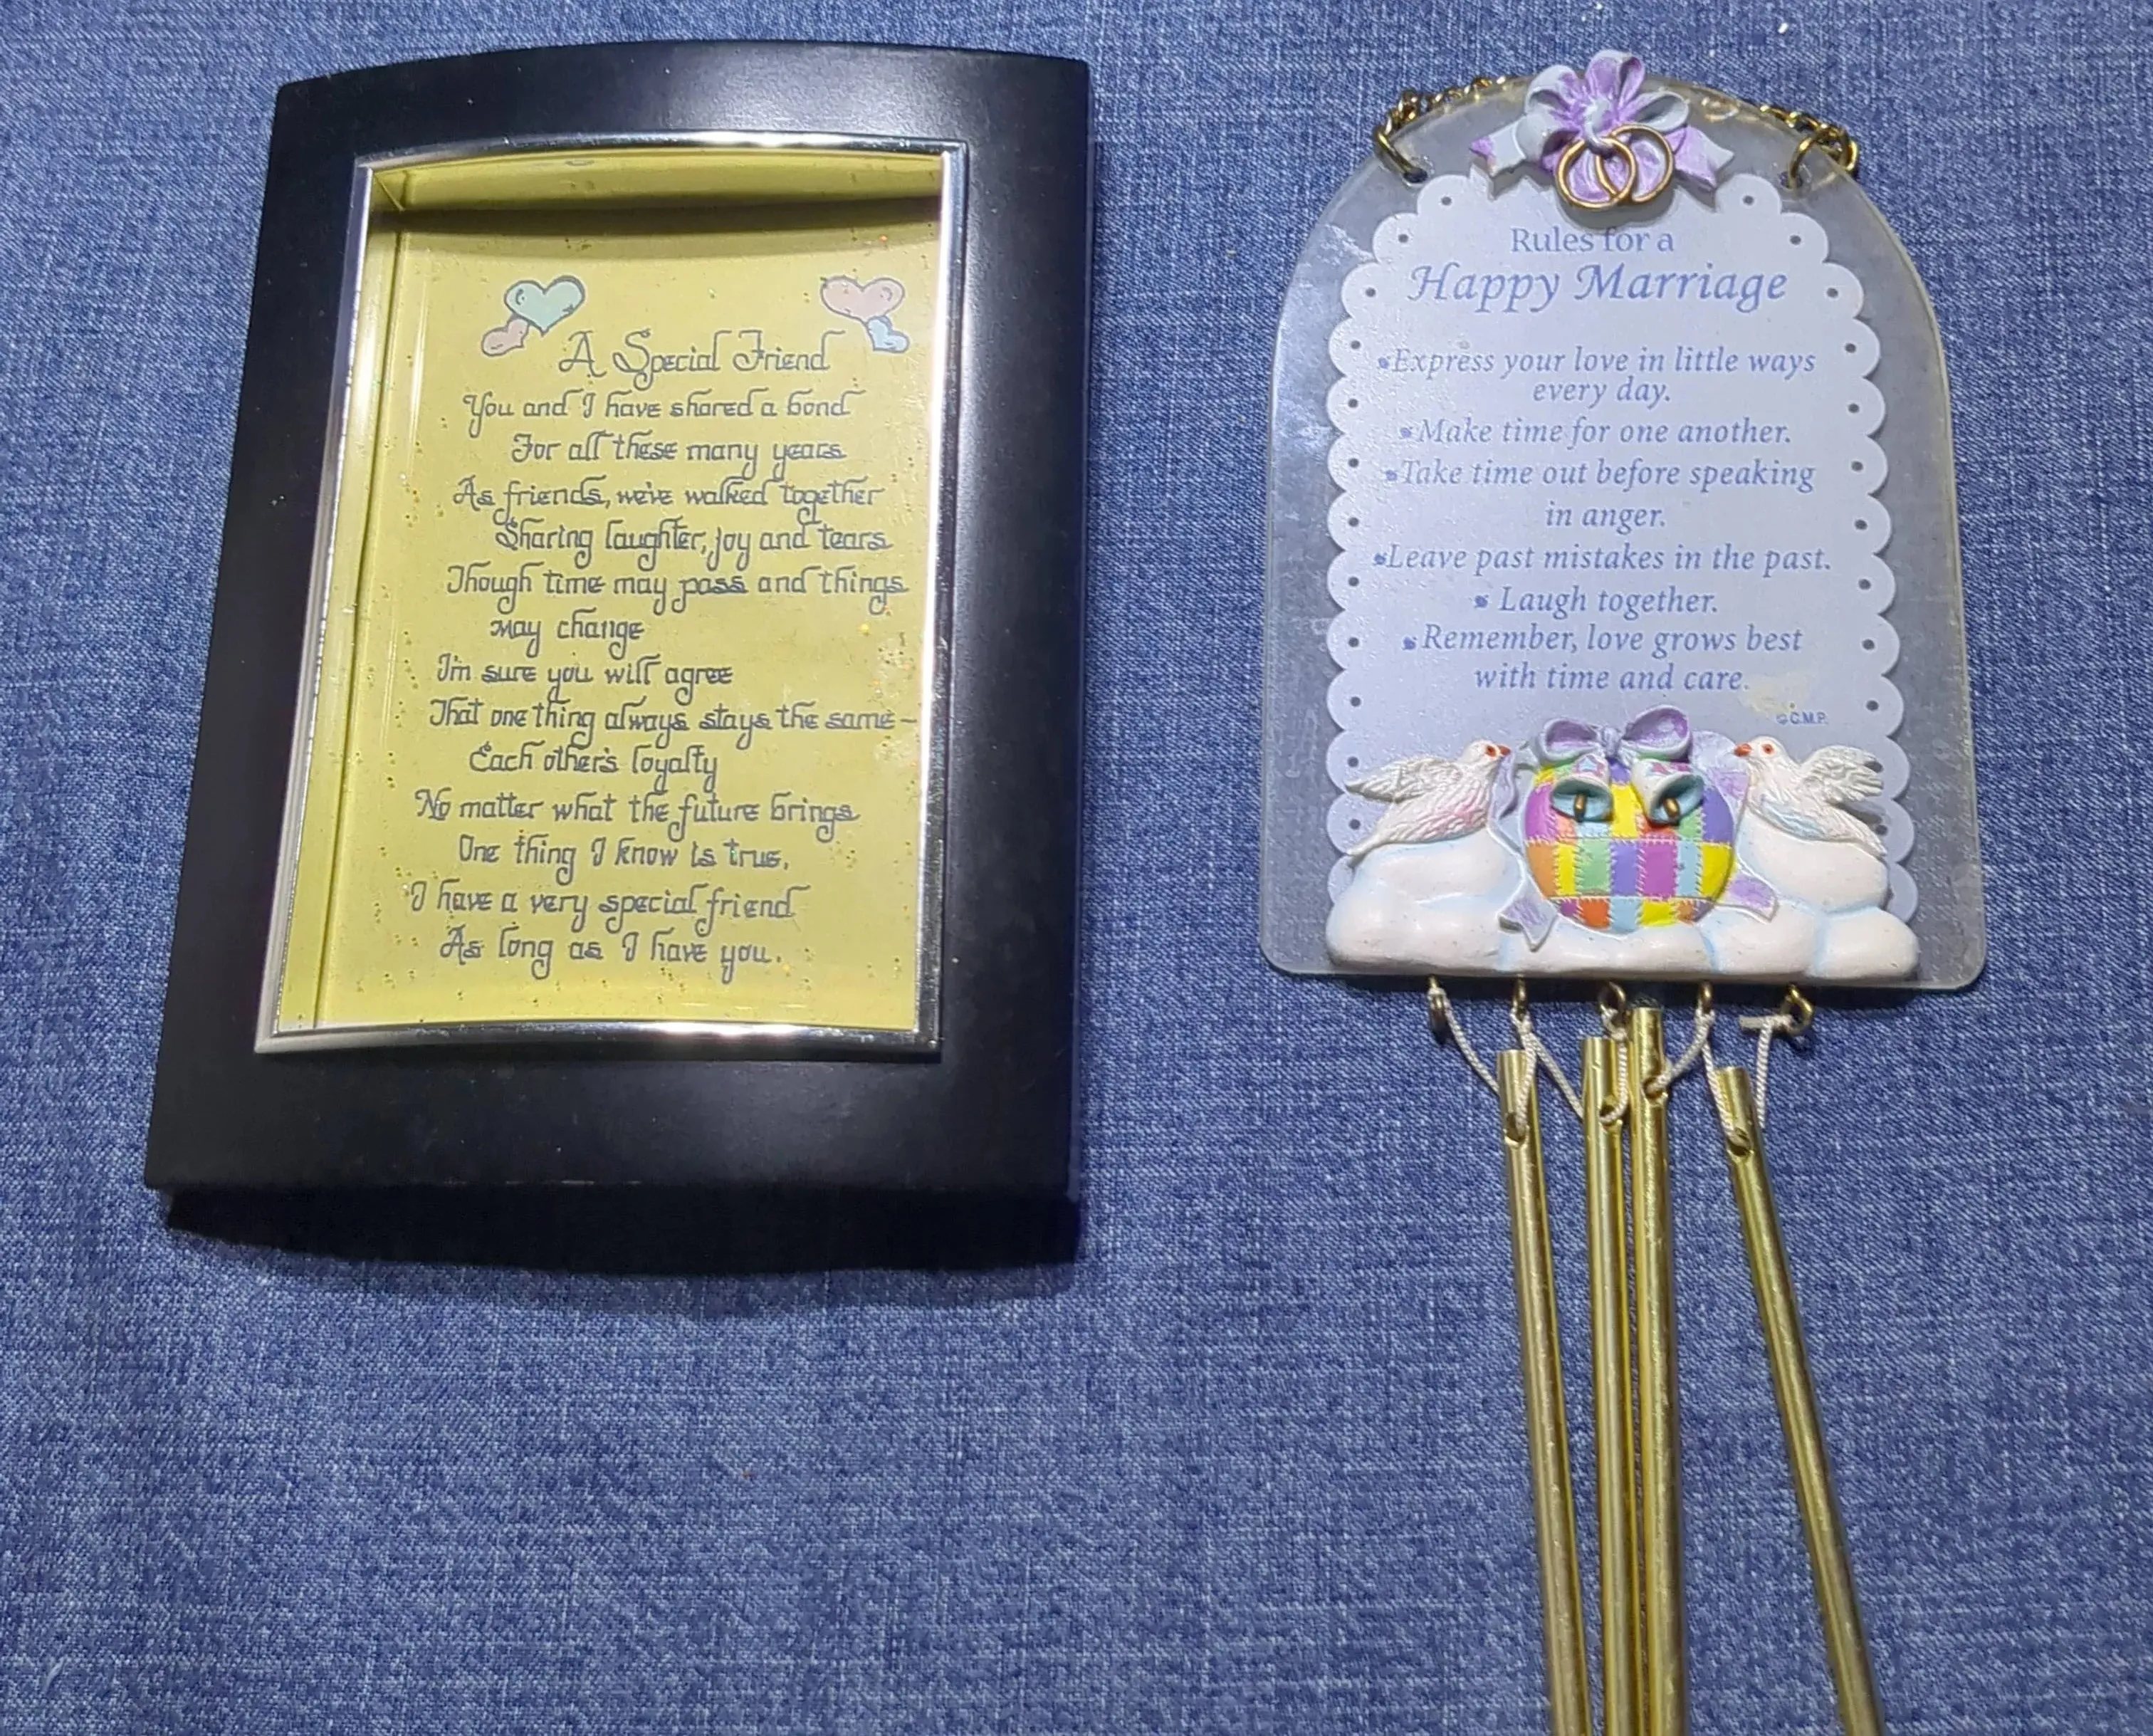 A Special Friend
You and I have shared a bond
For all these many years
As friends, we've walked together
Sharing laughter, joy and tears
Though time may pass and things
may change
I'm sure you will agree
That one thing always stays the same –
Each other's loyalty
No matter what the future brings
One thing I know is true,
I have a very special friend
As long as I have you.
Rules for a
Happy Marriage
Express your love in little ways
every day.
Make time for one another.
Take time out before speaking
in anger.
Leave past mistakes in the past.
Laugh together.
Remember, love grows best
with time and care.
©C.M.P.